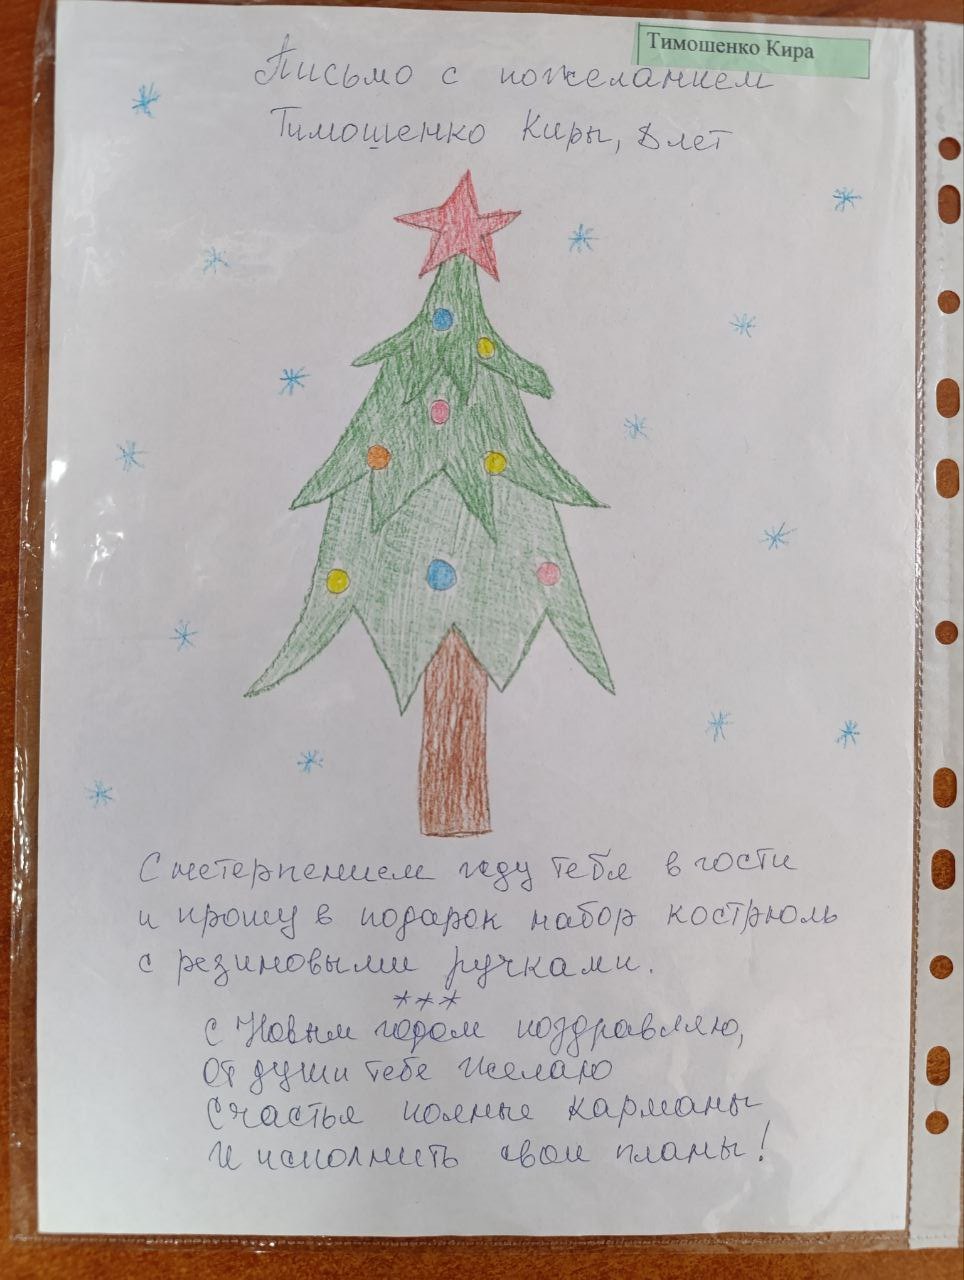 Тимошенко Кира
Письмо с пожеланием
Тимошенко Киры, 8 лет
С нетерпением жду тебя в гости
и прошу в подарок набор кострюль
с резиновыми ручками.
***
С Новым годом поздравляю,
От души тебе желаю
Счастья полные карманы
И исполнить свои планы!